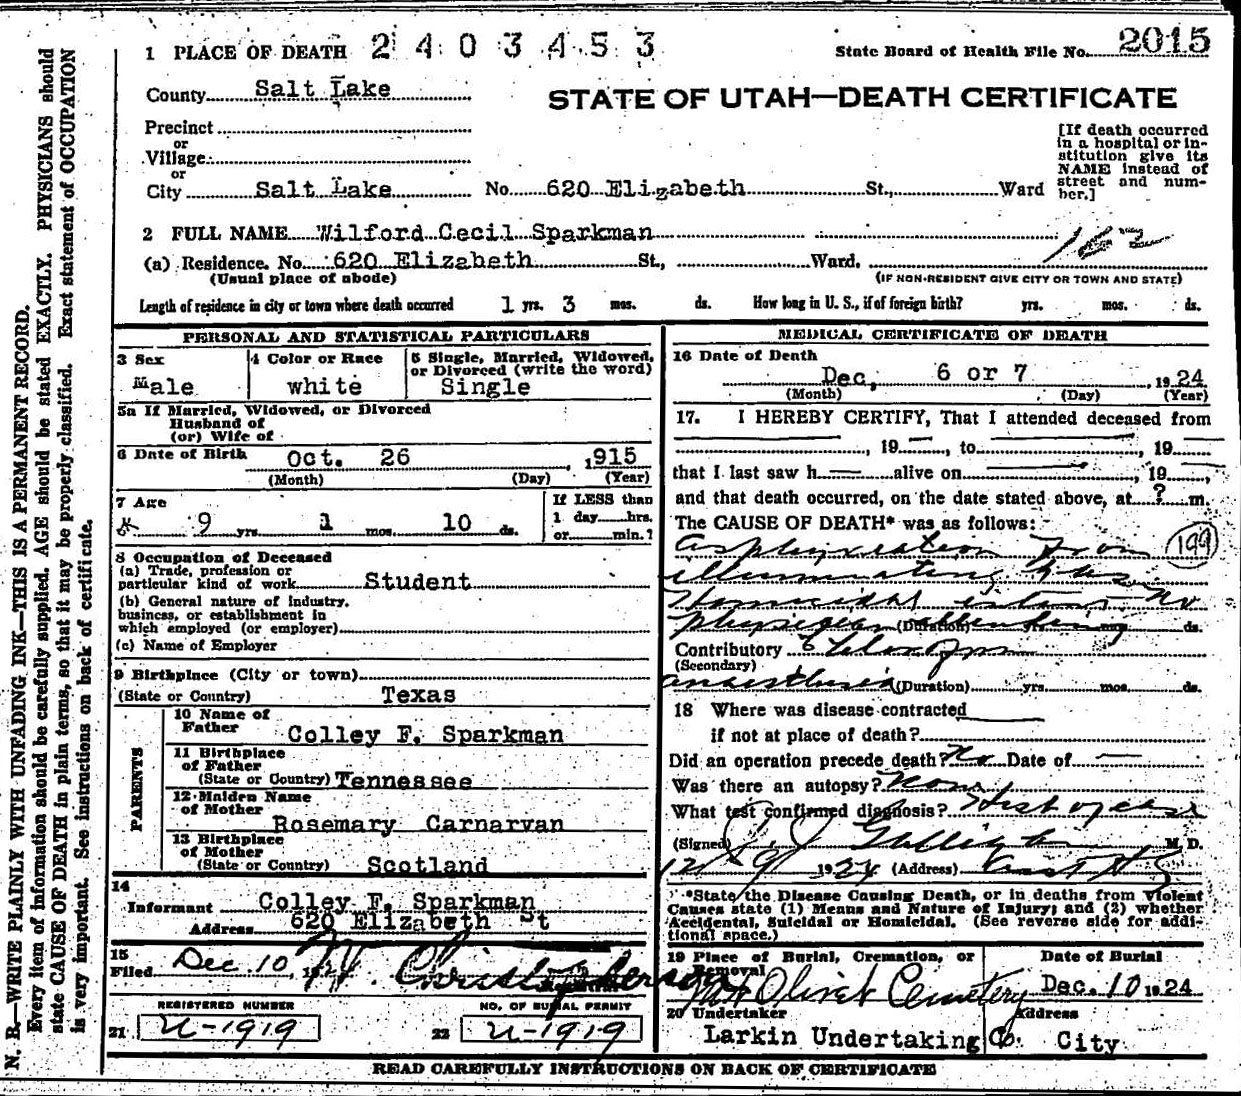 1 PLACE OF DEATH 2403453
State Board of Health File No. 2015
County Salt Lake
STATE OF UTAH—DEATH CERTIFICATE
Precinct
or
Village
or
City Salt Lake No. 620 Elizabeth St., Ward
[If death occurred
in a hospital or in-
stitution give its
NAME instead of
street and num-
ber.]
2 FULL NAME Wilford Cecil Sparkman
(a) Residence. No. 620 Elizabeth St., Ward.
(Usual place of abode) (IF NON-RESIDENT GIVE CITY OR TOWN AND STATE)
Length of residence in city or town where death occurred 1 yrs. 3 mos. ds. How long in U. S., if of foreign birth? yrs. mos. ds.
PERSONAL AND STATISTICAL PARTICULARS
3 Sex
Male
4 Color or Race
white
5 Single, Married, Widowed,
or Divorced (write the word)
Single
5a If Married, Widowed, or Divorced
Husband of
(or) Wife of
6 Date of Birth Oct. 26, 1915
(Month) (Day) (Year)
7 Age
9 yrs 1 mos. 10 ds.
If LESS than
1 day hrs.
or min.?
8 Occupation of Deceased
(a) Trade, profession or
particular kind of work Student
(b) General nature of industry,
business, or establishment in
which employed (or employer)
(c) Name of Employer
9 Birthplace (City or town)
(State or Country) Texas
PARENTS
10 Name of
Father Colley F. Sparkman
11 Birthplace
of Father
(State or Country) Tennessee
12 Maiden Name
of Mother
Rosemary Carnarvan
13 Birthplace
of Mother
(State or Country) Scotland
14
Informant Colley F. Sparkman
Address 620 Elizabeth St
15
Filed Dec. 10, 1924 W. Christopherson
REGISTERED NUMBER
21 U-1919
NO. OF BURIAL PERMIT
22 U-1919
MEDICAL CERTIFICATE OF DEATH
16 Date of Death
Dec, 6 or 7, 1924
(Month) (Day) (Year)
17. I HEREBY CERTIFY, That I attended deceased from
, 19 , to , 19
that I last saw h alive on , 19 ,
and that death occurred, on the date stated above, at ? m.
The CAUSE OF DEATH* was as follows:
asphyxiation from (199)
illuminating gas
Homicidal intent No
physician attending (Duration) yrs. mos. ds.
Contributory Chloroform
(Secondary)
anaesthesia (Duration) yrs. mos. ds.
18 Where was disease contracted
if not at place of death?
Did an operation precede death? No Date of —
Was there an autopsy? None
What test confirmed diagnosis? Hist of case
(Signed) M. D.
12/9 1924 (Address)
*State the Disease Causing Death, or in deaths from Violent
Causes state (1) Means and Nature of Injury; and (2) whether
Accidental, Suicidal or Homicidal. (See reverse side for addi-
tional space.)
19 Place of Burial, Cremation, or
Removal
Mt Olivet Cemetery
Date of Burial
Dec. 10 1924
20 Undertaker
Larkin Undertaking Co.
Address
City
READ CAREFULLY INSTRUCTIONS ON BACK OF CERTIFICATE
N. B.—WRITE PLAINLY WITH UNFADING INK—THIS IS A PERMANENT RECORD.
Every item of information should be carefully supplied. AGE should be stated EXACTLY. PHYSICIANS should
state CAUSE OF DEATH in plain terms, so that it may be properly classified. Exact statement of OCCUPATION
is very important. See instructions on back of certificate.